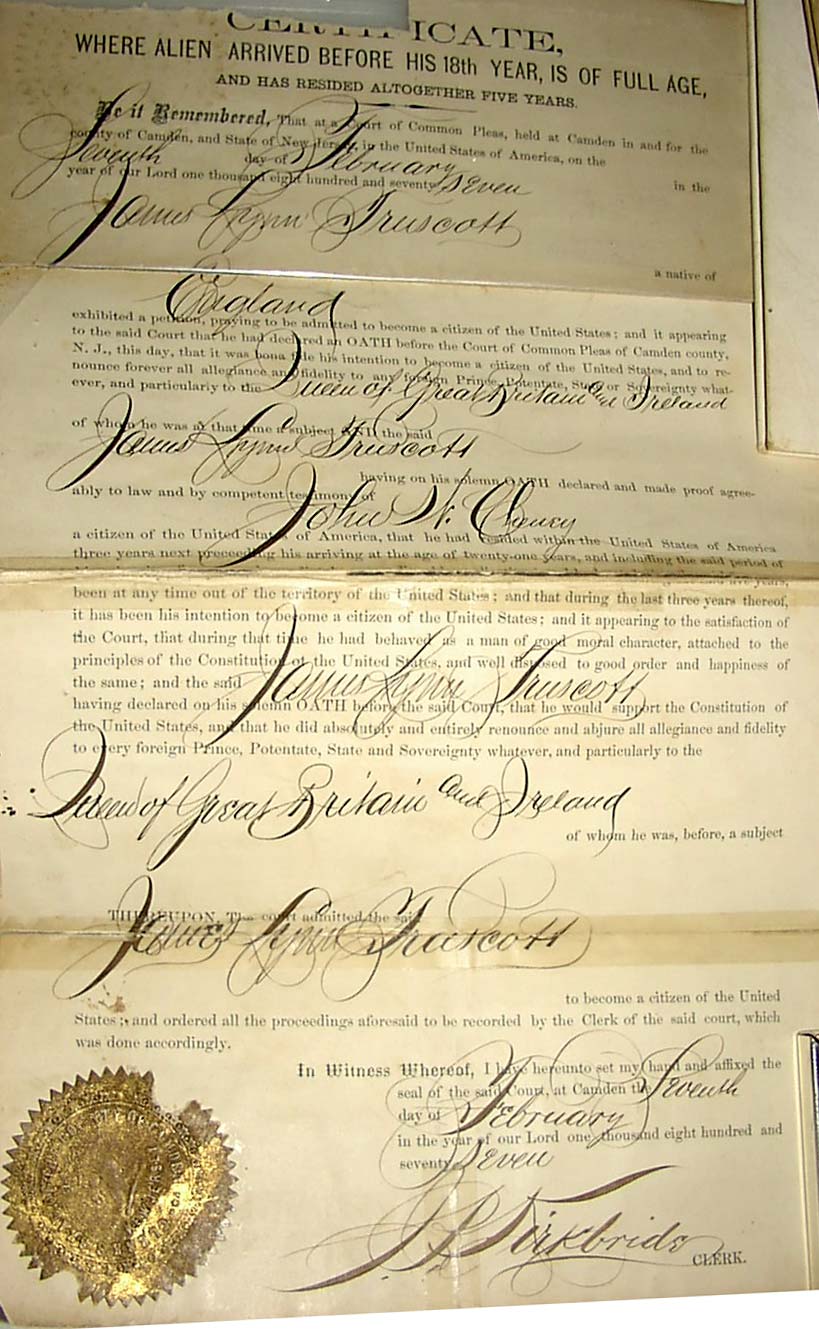 CERTIFICATE,
WHERE ALIEN ARRIVED BEFORE HIS 18th YEAR, IS OF FULL AGE,
AND HAS RESIDED ALTOGETHER FIVE YEARS.
Be it Remembered, That at a Court of Common Pleas, held at Camden in and for the
county of Camden, and State of New Jersey, in the United States of America, on the
Seventh day of February
year of our Lord one thousand eight hundred and seventy Seven in the
James Lynn Truscott
a native of
England
exhibited a petition, praying to be admitted to become a citizen of the United States; and it appearing
to the said Court that he had declared an OATH before the Court of Common Pleas of Camden county,
N. J., this day, that it was bona fide his intention to become a citizen of the United States, and to re-
nounce forever all allegiance and fidelity to any foreign Prince, Potentate, State or Sovereignty what-
ever, and particularly to the Queen of Great Britain and Ireland
of whom he was at that time a subject AND the said
James Lynn Truscott
having on his solemn OATH declared and made proof agree-
ably to law and by competent testimony of
John W. Cheney
a citizen of the United States of America, that he had resided within the United States of America
three years next preceeding his arriving at the age of twenty-one years, and including the said period of
five years,
been at any time out of the territory of the United States; and that during the last three years thereof,
it has been his intention to become a citizen of the United States; and it appearing to the satisfaction of
the Court, that during that time he had behaved as a man of good moral character, attached to the
principles of the Constitution of the United States, and well disposed to good order and happiness of
the same; and the said James Lynn Truscott
having declared on his solemn OATH before the said Court, that he would support the Constitution of
the United States, and that he did absolutely and entirely renounce and abjure all allegiance and fidelity
to every foreign Prince, Potentate, State and Sovereignty whatever, and particularly to the
Queen of Great Britain and Ireland
of whom he was, before, a subject
THEREUPON, The court admitted the said
James Lynn Truscott
to become a citizen of the United
States; and ordered all the proceedings aforesaid to be recorded by the Clerk of the said court, which
was done accordingly.
In Witness Whereof, I have hereunto set my hand and affixed the
seal of the said Court, at Camden the Seventh
day of February
in the year of our Lord one thousand eight hundred and
seventy Seven
Kirkbride CLERK.